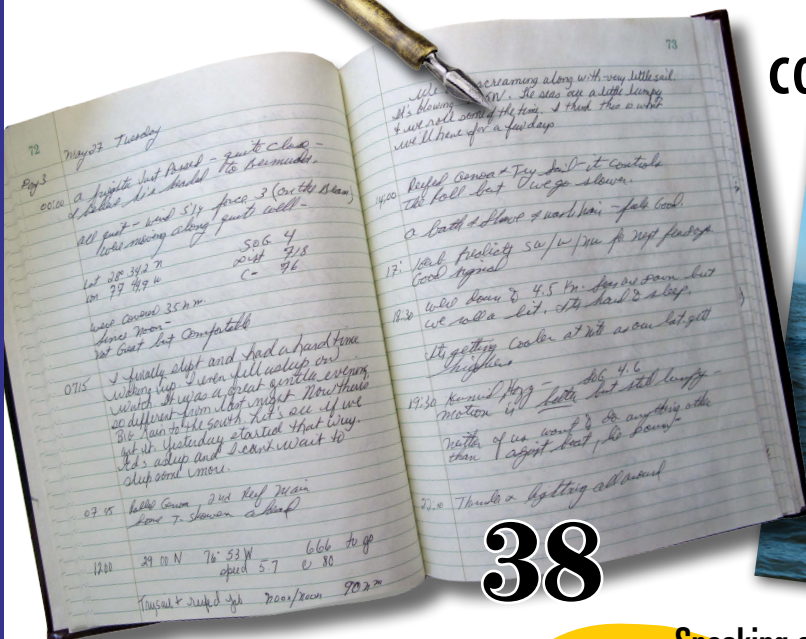 72
May 27 Tuesday
Day 3
00:00 a frigate Just Passed - quite close -
I believe he's headed to Bermuda.
all quiet - wind 514 force 3 (on the Beam)
were moving along quite well -
Lat 28° 34.2 N SOG 4
Lon 77 49.9 W Dist 718
C- 76
weve covered 35 n m
since noon -
not Great but Comfortable
0715 I finally slept and had a hard time
waking up. I even fell asleep on
watch. It was a great gentle evening
so different from last night. Now theres
Big rain to the south. Let's see if we
get it. yesterday started that way.
asleep and I can't wait to
sleep some more.
07 45 Rolled Genoa, 2nd Reef Main
some T. Showers ahead
1200 29 00 N 76° 53 W 666 to go
speed 5.7 C 80
Trysail + reefed jib noon/noon 90 n m
73
We screaming along with very little sail.
It's blowing N. The seas are a little lumpy
& we roll some of the time. I think this is what
we'll have for a few days
14:00 Reefed Genoa & Try Sail - it controls
the roll but we go slower.
a bath & shave & wash hair - feels Good.
17: predicts SW/W/NW for next few days
Good
18:30 Wind down to 4.5 Kn. Seas are down but
we roll a bit. It's hard to sleep.
Its getting cooler at nite as our lat. gets
higher.
19:30 SOG 4.6
motion is better but still lumpy -
neither of us want to do anything other
than adjust boat,
22:0 Thunder & lighting all around
38
CO
Speaking